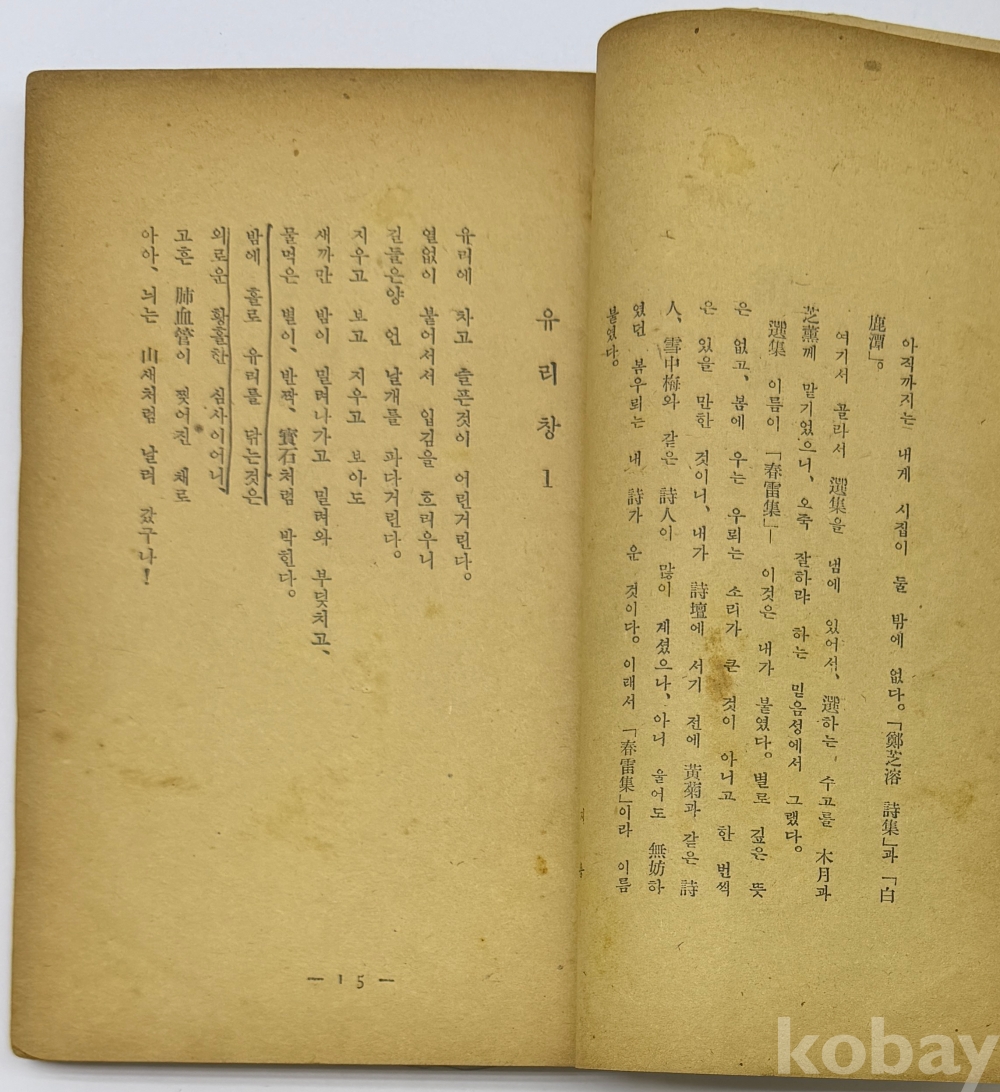 아직까지는 내게 시집이 둘 밖에 없다。「鄭芝溶 詩集」과 「白
鹿潭」。
여기서 골라서 選集을 냄에 있어서、選하는 수고를 木月과
芝薰께 맡기었으니、오죽 잘하랴 하는 믿음성에서 그랬다。
選集 이름이 「春雷集」— 이것은 내가 붙였다。별로 깊은 뜻
은 없고、봄에 우는 우뢰는 소리가 큰 것이 아니고 한 번씩
은 있을 만한 것이니、내가 詩壇에 서기 전에 黃菊과 같은 詩
人、雪中梅와 같은 詩人이 많이 계셨으나、아니 울어도 無妨하
였던 봄우뢰는 내 詩가 운 것이다。이래서 「春雷集」이라 이름
붙였다。
유리창 1
유리에 차고 슬픈것이 어린거린다。
열없이 붙어서서 입김을 흐리우니
길들은양 언 날개를 파다거린다。
지우고 보고 지우고 보아도
새까만 밤이 밀려나가고 밀려와 부딪치고、
물먹은 별이、반짝、寶石처럼 박힌다。
밤에 홀로 유리를 닦는것은
외로운 황홀한 심사이어니、
고흔 肺血管이 찢어진 채로
아아、늬는 山새처럼 날러 갔구나！
— 15 —
kobay